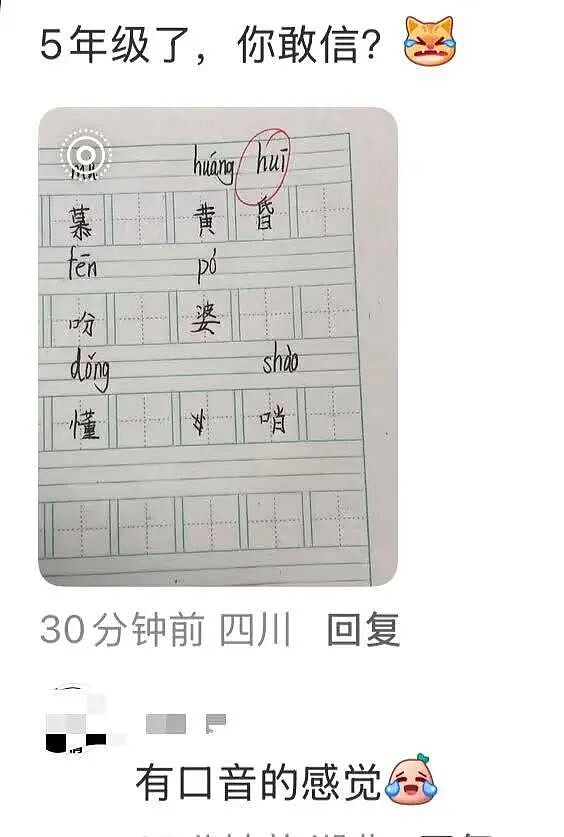 5年级了，你敢信？
huáng huī
慕 黄 昏
fēn pó
吩 婆
dǒng shào
懂 哨
30分钟前 四川 回复
有口音的感觉